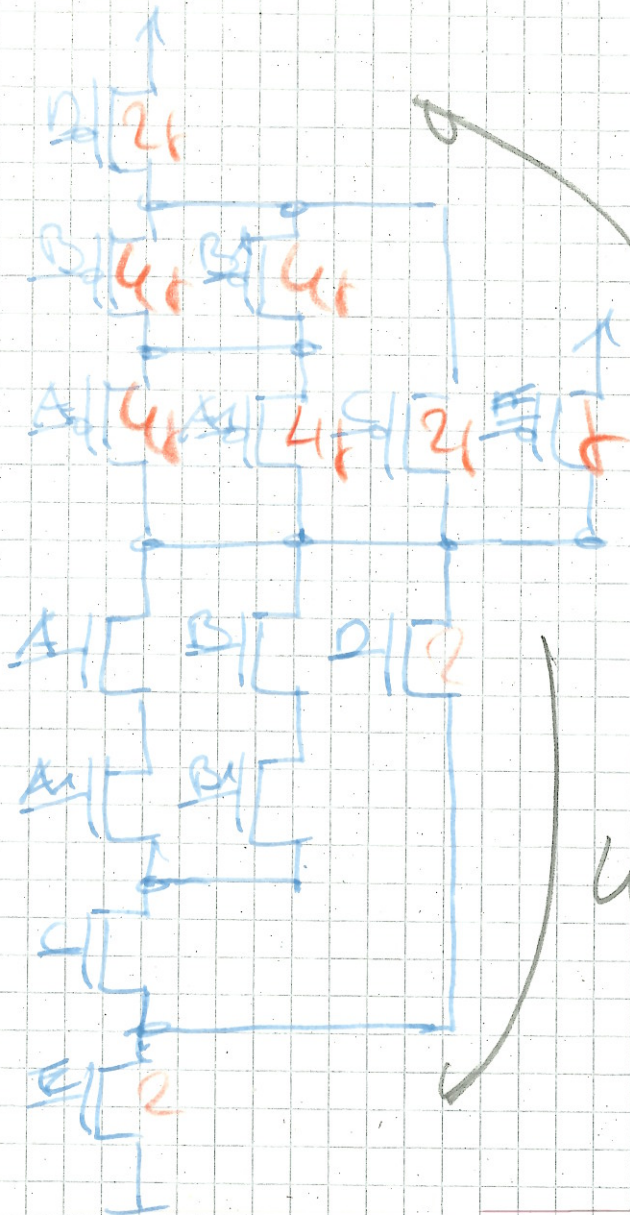 D 2r
B 4r B1 4r
A 4r A1 4r C 2r E r
A B D 2
A1 B1
C
E 2